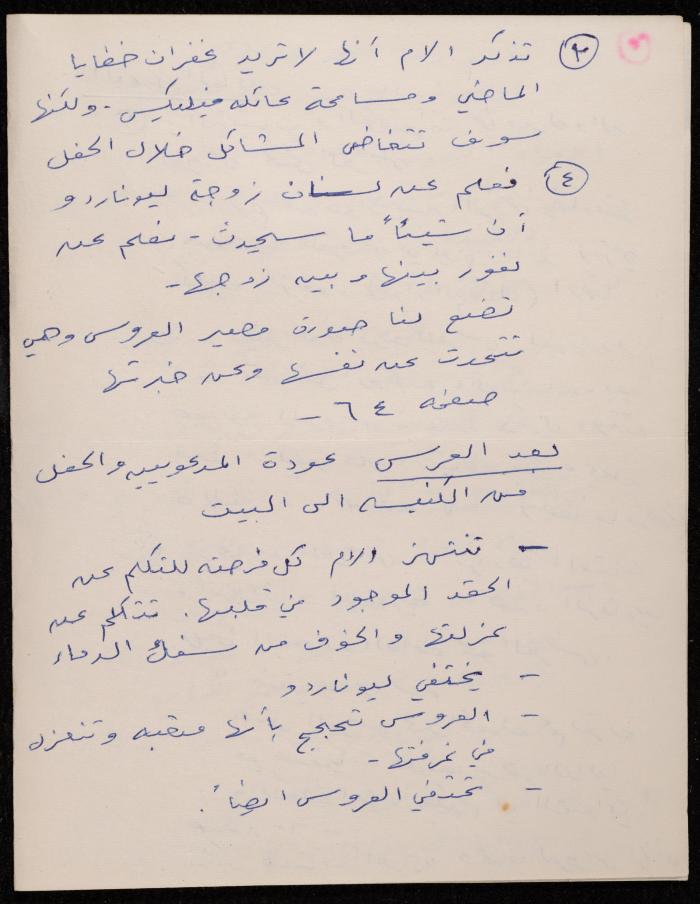 ٣ تذكر الام أنها لا تريد غفران خطايا
الماضي ومسامحة عائلة فيليكس. ولكنها
سوف تتغاضى المشاكل خلال الحفل
٤ نعلم عن لسان زوجة ليوناردو
أن شيئاً ما سيحدث - نعلم عن
نفور بينها وبين زوجها -
تضع لنا صورة مصير العروس وهي
تتحدث عن نفسها وعن خبرتها
صفحة ٦٤ -
بعد العرس عودة المدعويين والحفل
من الكنيسه الى البيت
- تنتهز الام كل فرصة للتكلم عن
الحقد الموجود في قلبها. تتكلم عن
عزلتها والخوف من سفك الدماء
- يختفي ليوناردو
- العروس تتحجج بأنها متعبه وتنعزل
في غرفتها -
- تختفي العروس ايضاً.